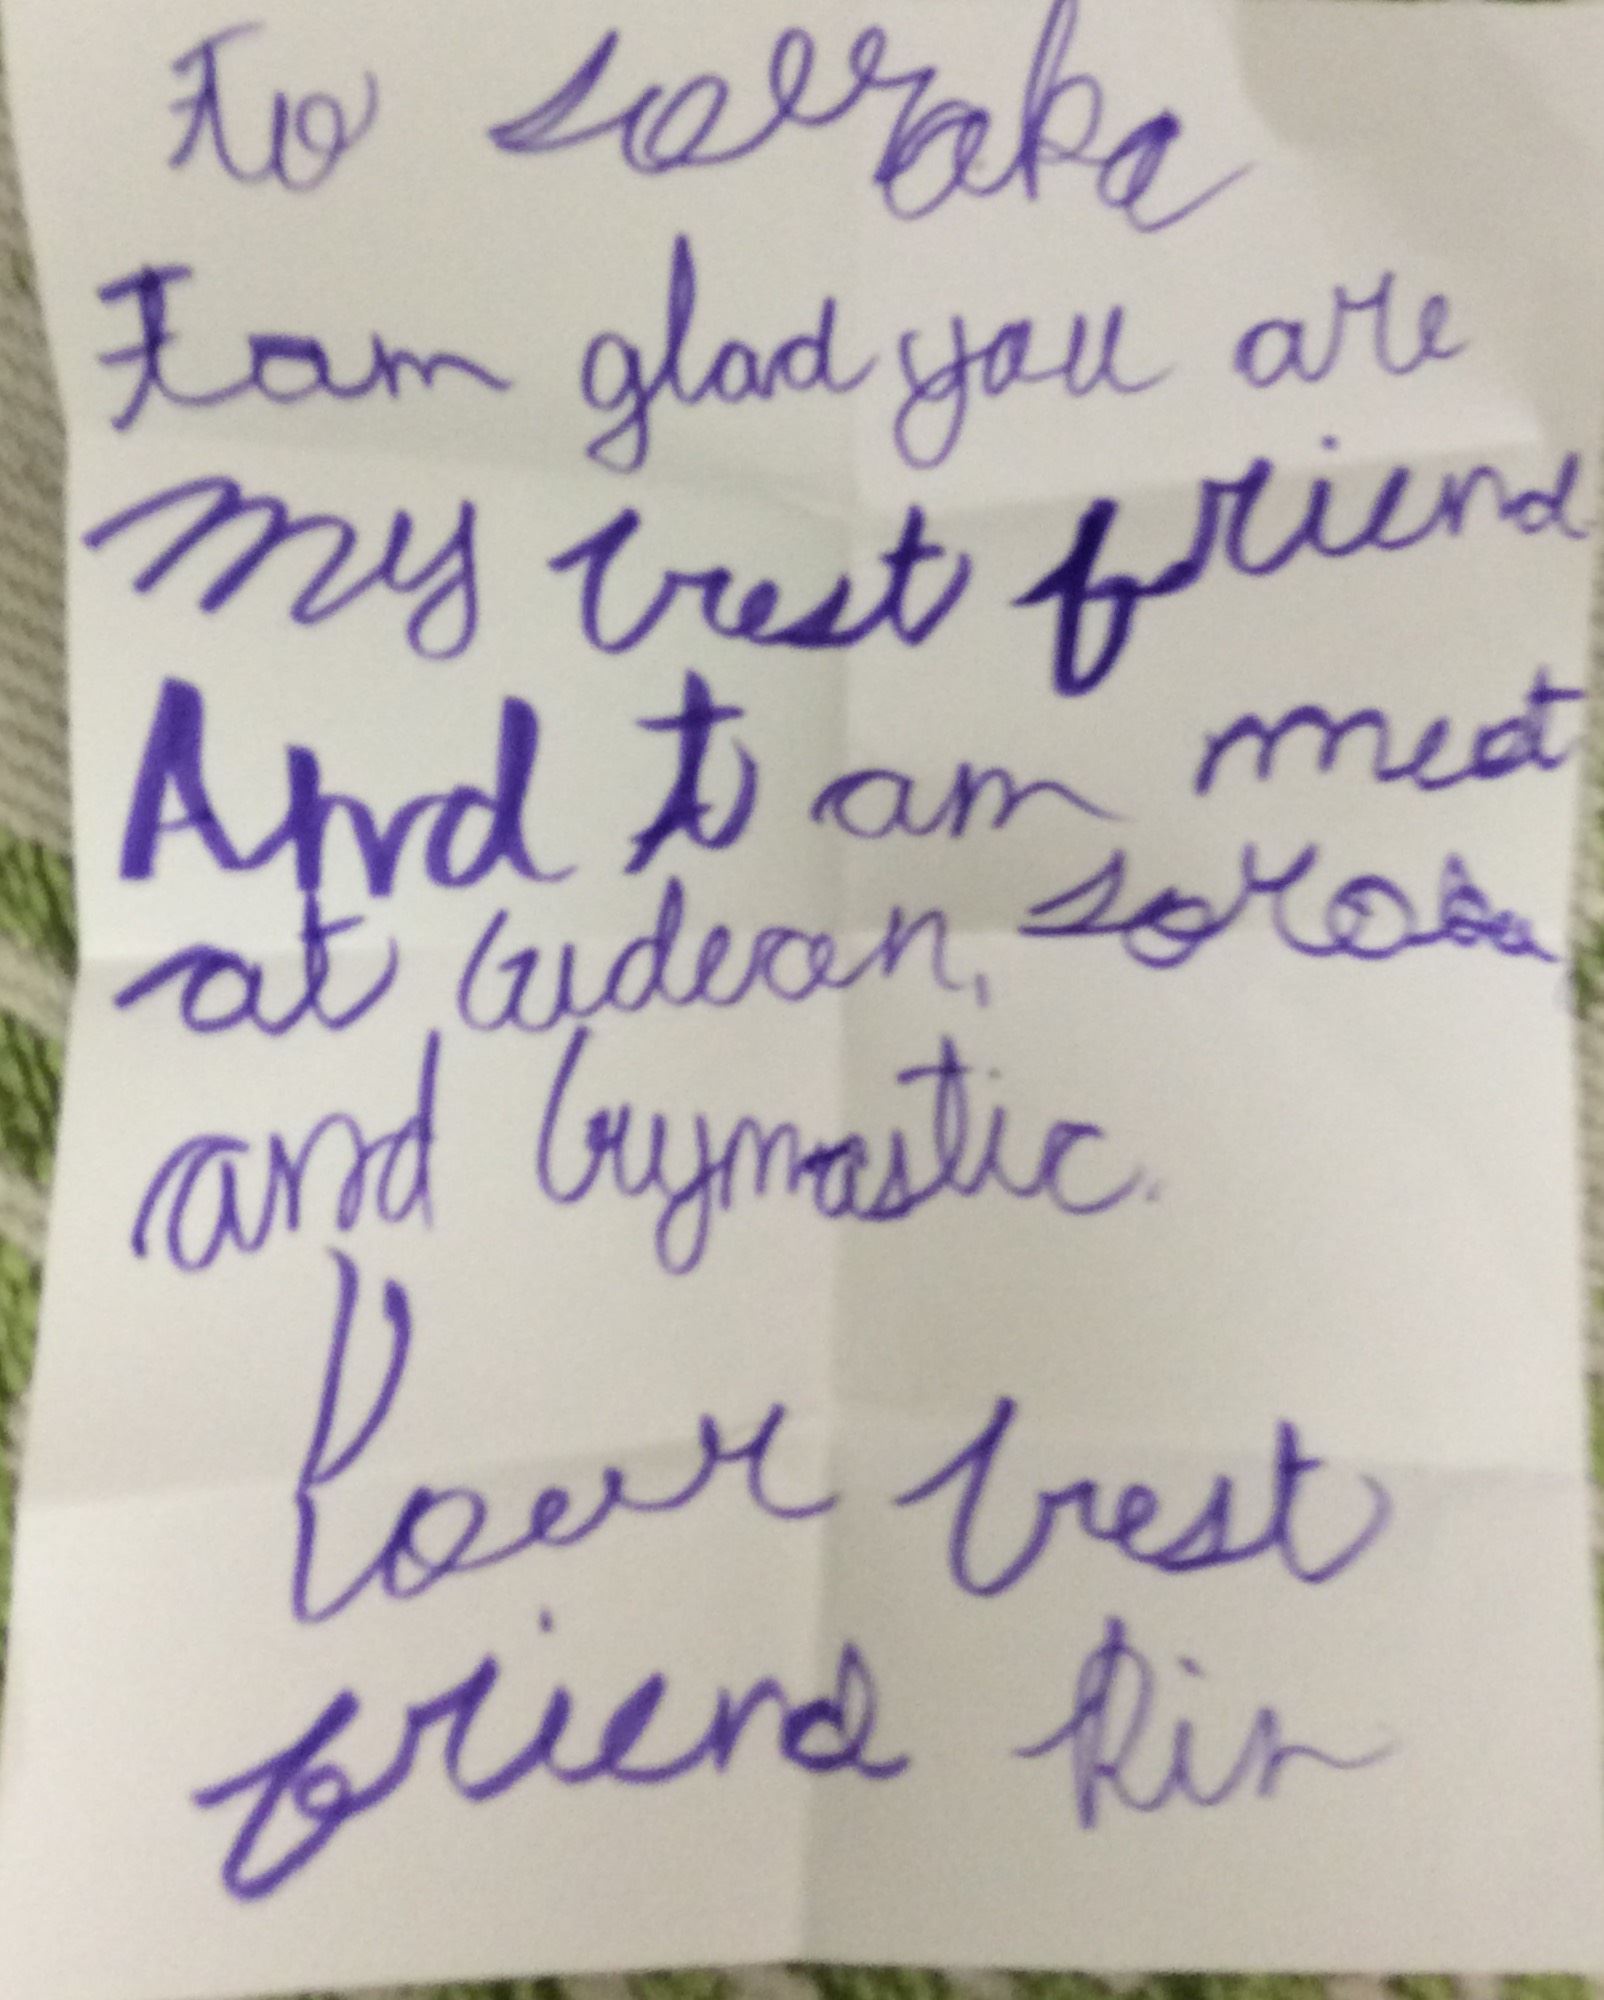 To souraka
I am glad you are
my best friend
And I am meet
at Gudean, soroba
and Gymastic.
Your best
friend Rin